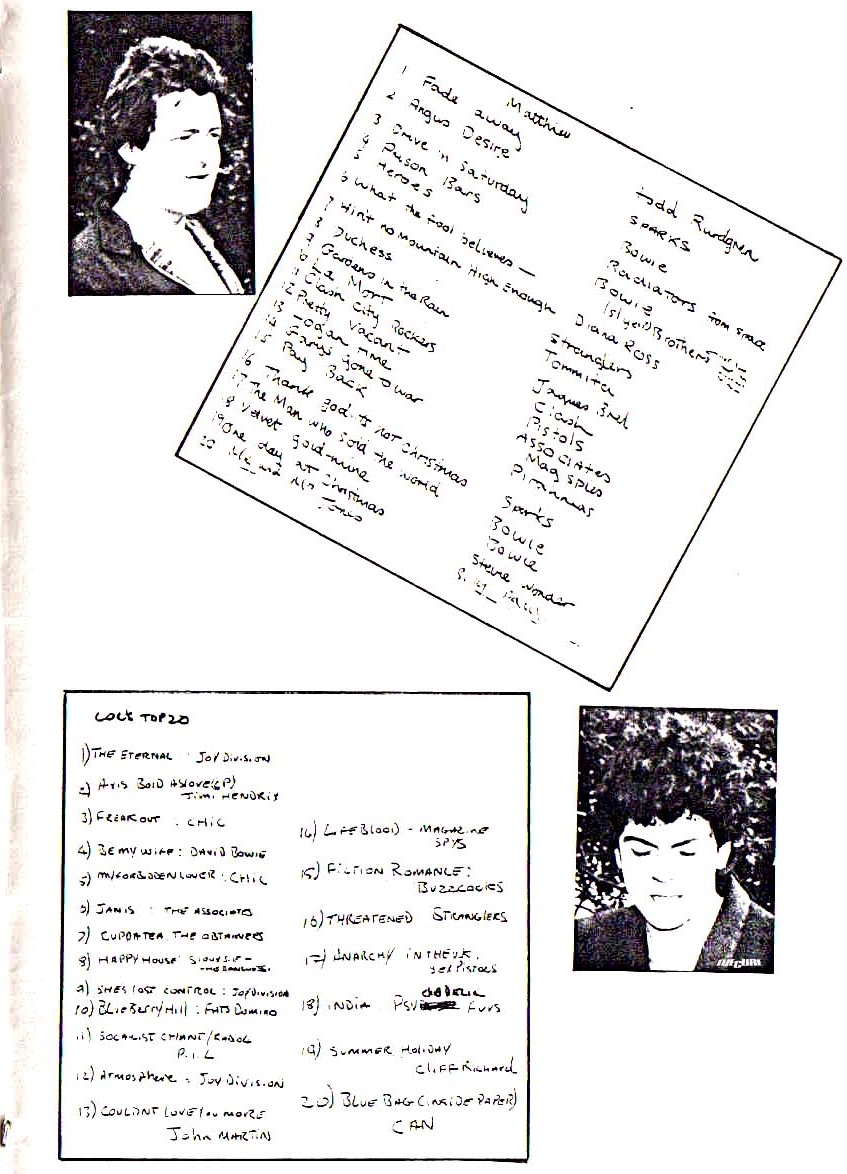 Matthieu
1 Fade away Todd Rundgren
2 Angus Desire SPARKS
3 Drive in Saturday Bowie
4 Prison Bars Radiators from space
5 Heroes Bowie
6 What the fool believes — Brothers
7 Hint no Mountain High Enough Diana Ross
8 Duchess Stranglers
9 Gardens in the Rain Tommita
10 La Mort Jaques Brel
11 Clash City Rockers Clash
12 Pretty Vacant Pistols
13 ASSOCIATES
14 gone to war Mag Spies
15 Pay Back Pirannas
16 Thank god its not Christmas Sparks
17 The Man who sold the world Bowie
18 Velvet gold-mine Bowie
19 One day at Christmas Stevie Wonder
20 Me and Mrs Jones
TOP 20
1) THE ETERNAL : JOY DIVISION
2) AXIS BOLD AS LOVE (LP)
JIMI HENDRIX
3) FREAK OUT : CHIC
4) BE MY WIFE : DAVID BOWIE
5) MY FORBIDDEN LOVER : CHIC
6) JANIS : THE ASSOCIATES
7) CUPOATEA THE OBTAINERS
8) HAPPY HOUSE SIOUXSIE -
THE BANSHEES
9) SHES LOST CONTROL : JOY DIVISION
10) BLUEBERRY HILL : FATS DOMINO
11) SOCALIST
P.I.L
12) ATMOSPHERE : JOY DIVISION
13) COULDNT LOVE YOU MORE
John MARTIN
14) LIFEBLOOD - MAGAZINE
SPYS
15) FICTION ROMANCE :
BUZZCOCKS
16) THREATENED STRANGLERS
17) ANARCHY IN THE U.K.
SEX PISTOLS
18) INDIA PSYCHEDELIC FURS
19) SUMMER HOLIDAY
CLIFF RICHARD
20) BLUE BAG (INSIDE PAPER)
CAN